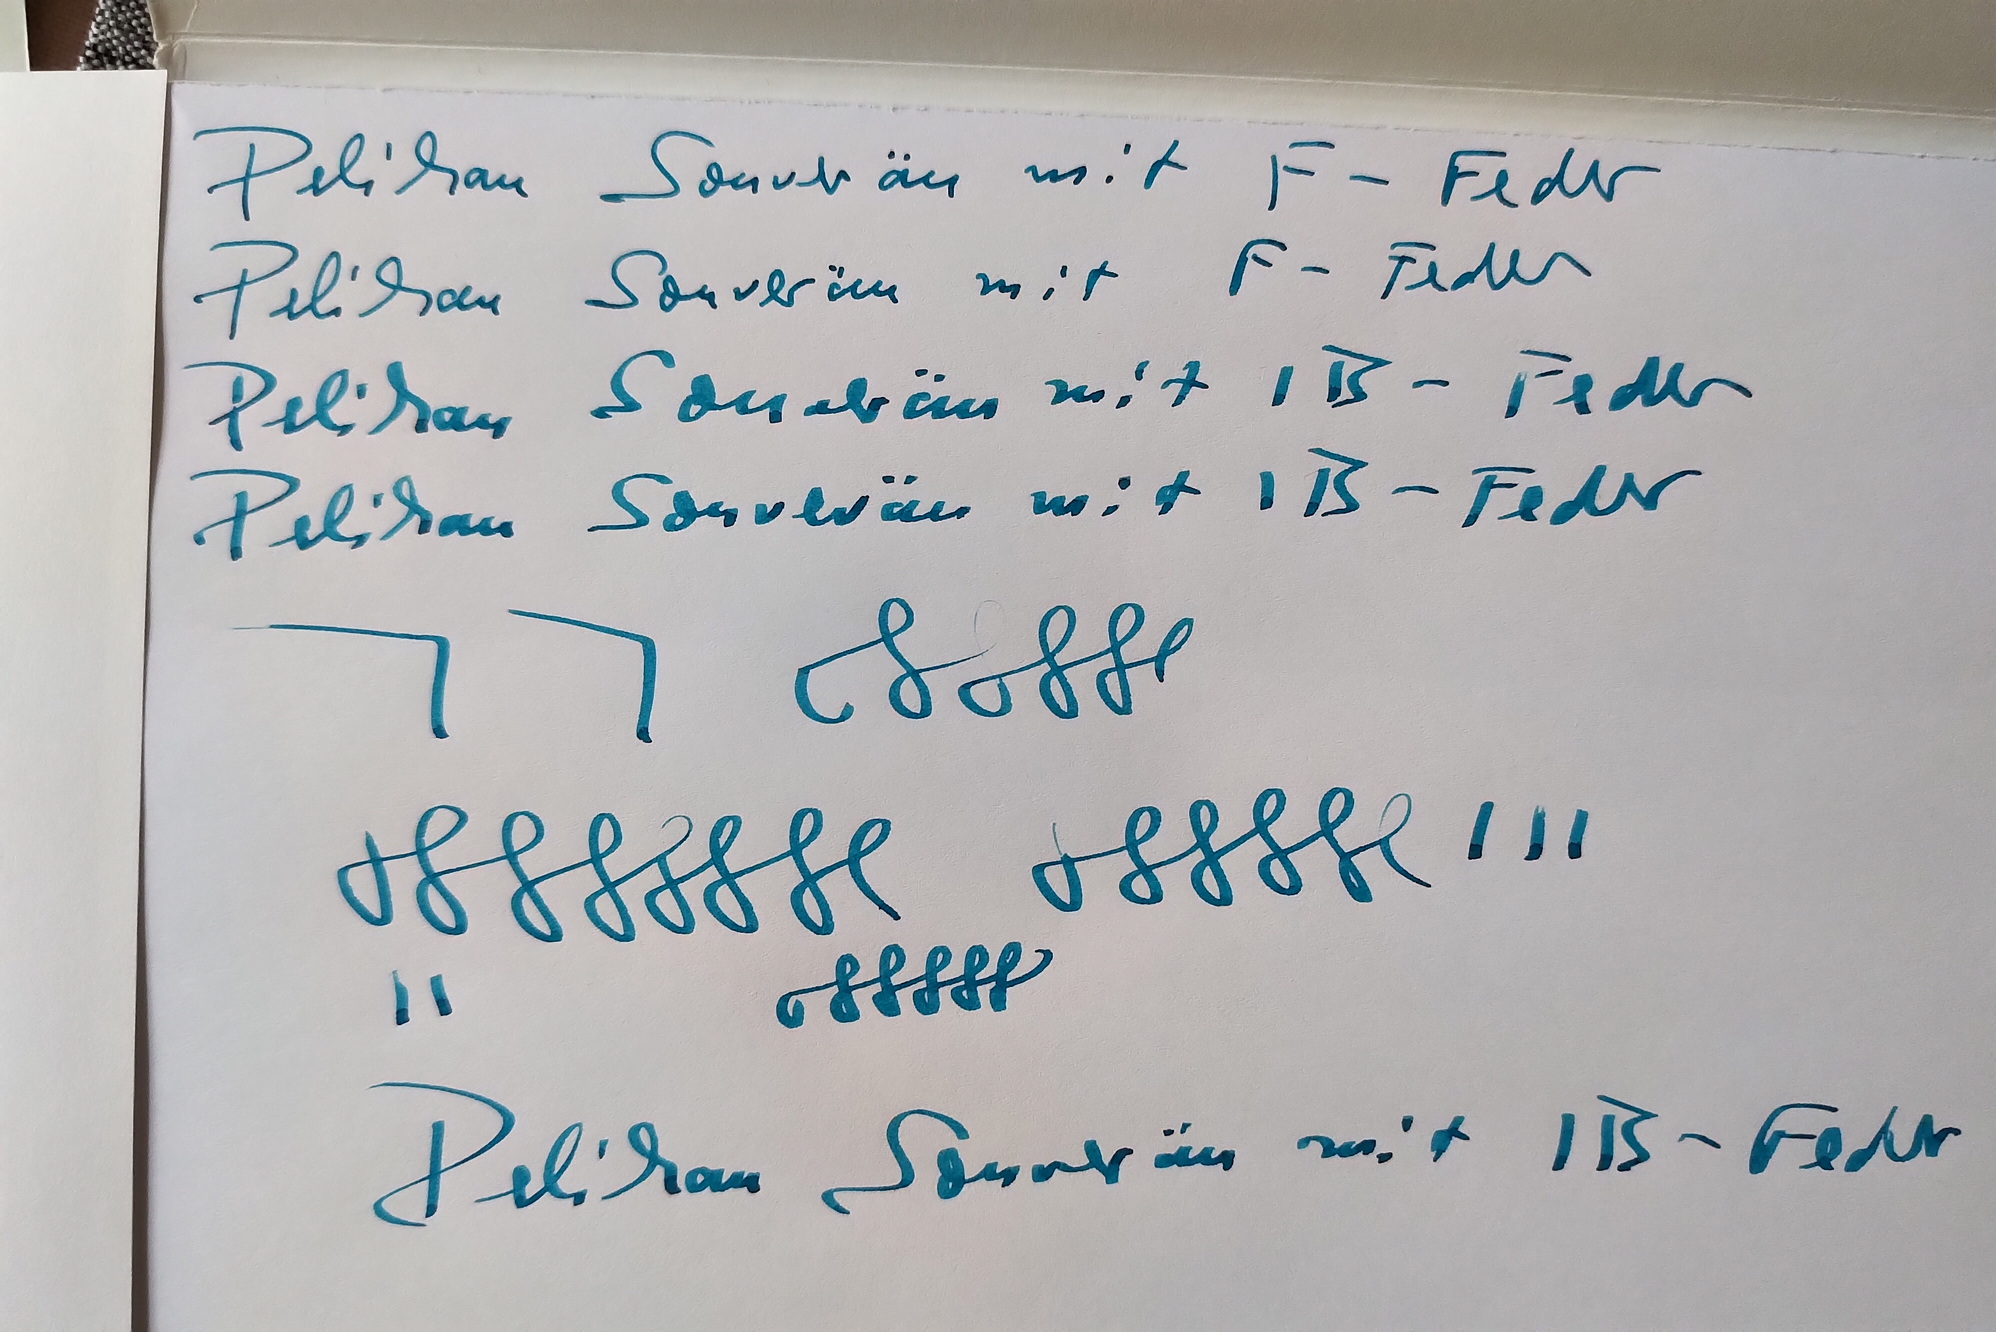 Pelikan Souverän mit F-Feder
Pelikan Souverän mit F-Feder
Pelikan Souverän mit IB-Feder
Pelikan Souverän mit IB-Feder
Pelikan Souverän mit IB-Feder